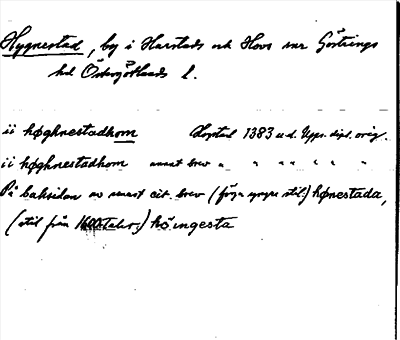 Hygnestad, by i Harstads och Hovs snr Göstrings
hd Östergötlands l.
ii høghnestadhom Hogstad 1383 u.d. Upps. dipl. orig.
ii høghnestadhom annat brev " " " " " "
På baksidan av annat cit. brev (föga yngre stil) hønestada,
(stil från 1600-talet.) höingesta